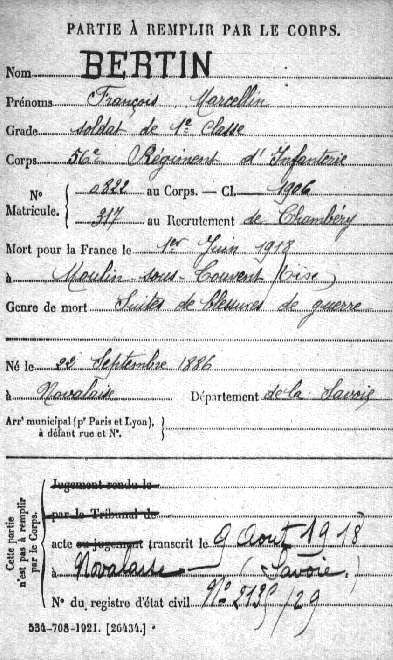 PARTIE À REMPLIR PAR LE CORPS.
Nom BERTIN
Prénoms François Marcellin
Grade soldat de 1e Classe
Corps 56e Régiment d'Infanterie
N° Matricule. { 0822 au Corps. — Cl. 1906
317 au Recrutement de Chambéry
Mort pour la France le 1er Juin 1918
à Moulin-sous-Touvent (Oise)
Genre de mort Suites de blessures de guerre
Né le 22 Septembre 1886
à Novalaise Département de la Savoie
Arrt municipal (pr Paris et Lyon), à défaut rue et N°. }
Cette partie n'est pas à remplir par le Corps.
Jugement rendu le
par le Tribunal de
acte ou jugement transcrit le 9 Aout 1918
à Novalaise (Savoie.)
N° du registre d'état civil
534-708-1921. [26434.]